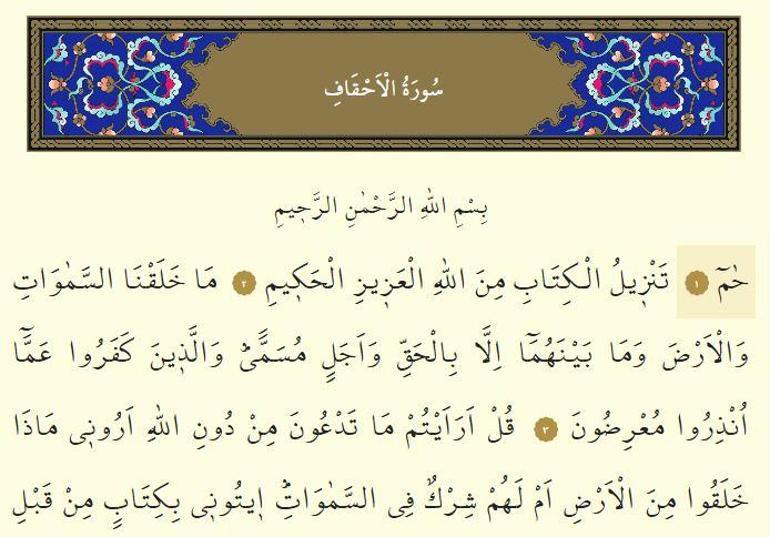 سُورَةُ الْاَحْقَافِ
بِسْمِ اللهِ الرَّحْمٰنِ الرَّح۪يمِ
حٰمٓ ١ تَنْز۪يلُ الْكِتَابِ مِنَ اللهِ الْعَز۪يزِ الْحَك۪يمِ ٢ مَا خَلَقْنَا السَّمٰوَاتِ
وَالْاَرْضَ وَمَا بَيْنَهُمَٓا اِلَّا بِالْحَقِّ وَاَجَلٍ مُسَمًّىۜ وَالَّذ۪ينَ كَفَرُوا عَمَّٓا
اُنْذِرُوا مُعْرِضُونَ ٣ قُلْ اَرَاَيْتُمْ مَا تَدْعُونَ مِنْ دُونِ اللهِ اَرُون۪ي مَاذَا
خَلَقُوا مِنَ الْاَرْضِ اَمْ لَهُمْ شِرْكٌ فِي السَّمٰوَاتِۜ ا۪يتُون۪ي بِكِتَابٍ مِنْ قَبْلِ